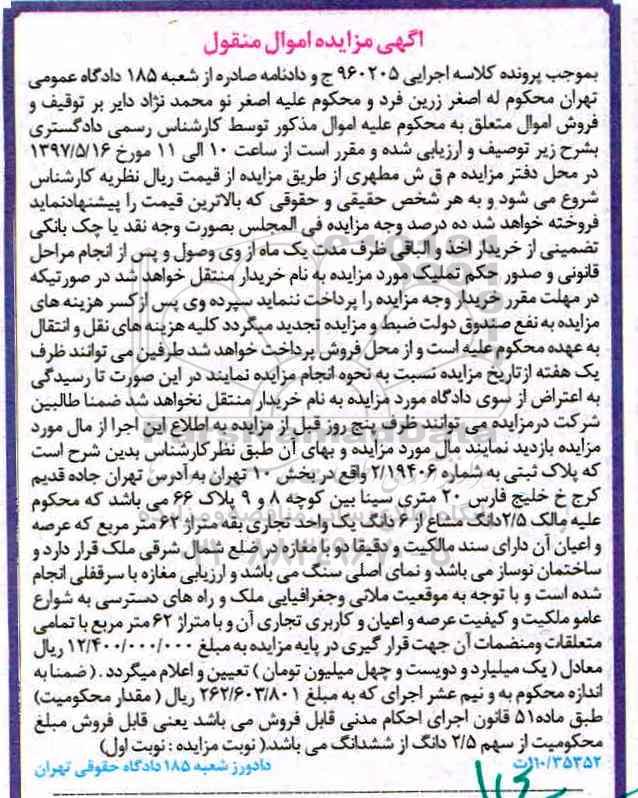 آگهی مزایده اموال منقول
بموجب پرونده کلاسه اجرایی ۹۶۰۲۰۵ ج و دادنامه صادره از شعبه ۱۸۵ دادگاه عمومی
تهران محکوم له اصغر زرین فرد و محکوم علیه اصغر نو محمد نژاد دایر بر توقیف و
فروش اموال متعلق به محکوم علیه اموال مذکور توسط کارشناس رسمی دادگستری
بشرح زیر توصیف و ارزیابی شده و مقرر است از ساعت ۱۰ الی ۱۱ مورخ ۱۳۹۷/۵/۱۶
در محل دفتر مزایده م ق ش مطهری از طریق مزایده از قیمت ریال نظریه کارشناس
شروع می شود و به هر شخص حقیقی و حقوقی که بالاترین قیمت را پیشنهادنماید
فروخته خواهد شد ده درصد وجه مزایده فی المجلس بصورت وجه نقد یا چک بانکی
تضمینی از خریدار اخذ و الباقی ظرف مدت یک ماه از وی وصول و پس از انجام مراحل
قانونی و صدور حکم تملیک مورد مزایده به نام خریدار منتقل خواهد شد در صورتیکه
در مهلت مقرر خریدار وجه مزایده را پرداخت ننماید سپرده وی پس ازکسر هزینه های
مزایده به نفع صندوق دولت ضبط و مزایده تجدید میگردد کلیه هزینه های نقل و انتقال
به عهده محکوم علیه است و از محل فروش پرداخت خواهد شد طرفین می توانند ظرف
یک هفته ازتاریخ مزایده نسبت به نحوه انجام مزایده نمایند در این صورت تا رسیدگی
به اعتراض از سوی دادگاه مورد مزایده به نام خریدار منتقل نخواهد شد ضمنا طالبین
شرکت درمزایده می توانند ظرف پنج روز قبل از مزایده به اطلاع این اجرا از مال مورد
مزایده بازدید نمایند مال مورد مزایده و بهای آن طبق نظر کارشناس بدین شرح است
که پلاک ثبتی به شماره ۲/۱۹۴۰۶ واقع در بخش ۱۰ تهران به آدرس تهران جاده قدیم
کرج خ خلیج فارس ۲۰ متری سینا بین کوچه ۸ و ۹ پلاک ۶۶ می باشد که محکوم
علیه مالک ۲/۵دانگ مشاع از ۶ دانگ یک واحد تجاری بقه متراژ ۶۲ متر مربع که عرصه
و اعیان آن دارای سند مالکیت و دقیقا دو با مغازه در ضلع شمال شرقی ملک قرار دارد و
ساختمان نوساز می باشد و نمای اصلی سنگ می باشد و ارزیابی مغازه با سرقفلی انجام
شده است و با توجه به موقعیت ملاتی وجغرافیایی ملک و راه های دسترسی به شوارع
عامو ملکیت و کیفیت عرصه و اعیان و کاربری تجاری آن و با متراژ ۶۲ متر مربع با تمامی
متعلقات ومنضمات آن جهت قرار گیری در پایه مزایده به مبلغ ۱۲/۴۰۰/۰۰۰/۰۰۰ ریال
معادل ( یک میلیارد و دویست و چهل میلیون تومان ) تعیین و اعلام میگردد . ( ضمنا به
اندازه محکوم به و نیم عشر اجرای که به مبلغ ۲۶۲/۶۰۳/۸۰۱ ریال ( مقدار محکومیت)
طبق ماده۵۱ قانون اجرای احکام مدنی قابل فروش می باشد یعنی قابل فروش مبلغ
محکومیت از سهم ۲/۵ دانگ از ششدانگ می باشد.( نوبت مزایده : نوبت اول)
۱۰/۳۵۳۵۲/ت دادورز شعبه ۱۸۵ دادگاه حقوقی تهران